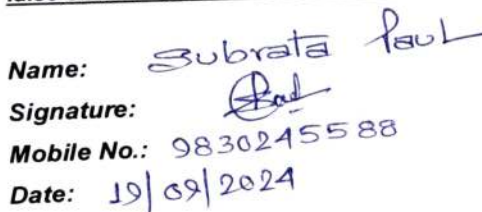 Name: Subrata Paul
Signature:
Mobile No.: 9830245588
Date: 19/09/2024